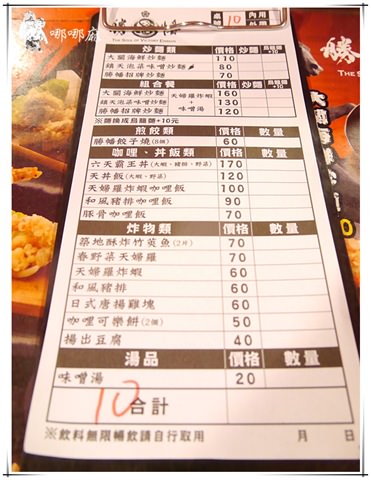 哪哪麻
桌號 10 內用 外帶
THE SOUL OF VICTORY EDISION
炒麵類 價格 炒麵 烏龍麵+10
大關海鮮炒麵 110
鎮天泡菜味噌炒麵 80
勝幡招牌炒麵 70
組合餐 價格 炒麵 烏龍麵+10
大關海鮮炒麵 天婦羅炸蝦 + 味噌湯 160
鎮天泡菜味噌炒麵 130
勝幡招牌炒麵 120
※麵換成烏龍麵+10元
煎餃類 價格 數量
勝幡餃子燒(8個) 60
咖哩、丼飯類 價格 數量
六天霸王丼(大蝦、豬排、野菜) 170
天丼飯(大蝦、野菜) 120
天婦羅炸蝦咖哩飯 100
和風豬排咖哩飯 90
豚骨咖哩飯 70
炸物類 價格 數量
築地酥炸竹莢魚(2片) 70
春野菜天婦羅 70
天婦羅炸蝦 60
和風豬排 60
日式唐揚雞塊 60
咖哩可樂餅(2個) 50
揚出豆腐 40
湯品 價格 數量
味噌湯 20
10 合計
※飲料無限暢飲請自行取用 月 日
勝
THE S